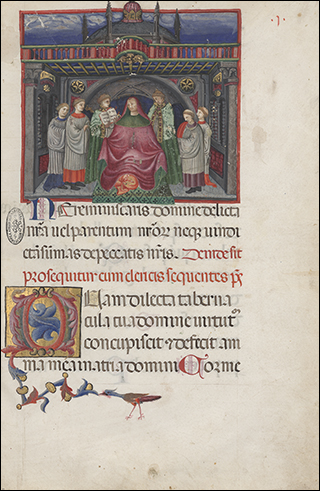 .1.
Ne reminiscaris domine delicta
nr̃a uel parentum nr̃oꝝ neq; uindi
ctã sumas de peccatis nr̃is. Deinde
prosequitur cum clericis sequentes ps̃
Quam dilecta taberna
cula tua domine uirtutũ
concupiscit & deficit ani
ma mea in atria domini Cor me